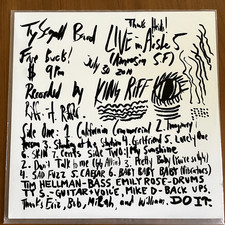 Ty Segall Band Thanks Utah!
LIVE in Aisle 5
Five Bucks!
$ 9pm July 30 2011
Recorded by KING RIFF
Side One: 1 California Commercial 2. Imaginary
Person 3. Standing at the Station 4. Girlfriend 5. Lovely One
6. SKIN 7. Cents Side Two: 1 My Sunshine
2. Don't Talk to me (GG Allin) 3. Pretty Baby
4 SAD FUZZ 5 CAESAR 6 BABY BABY BABY
TIM HELLMAN-BASS, EMILY ROSE-DRUMS
TY S.- GUITAR+VOICE, MIKE D- BACK UPS.
Thanks Eric, Bob, Mikah, and William. DO IT.